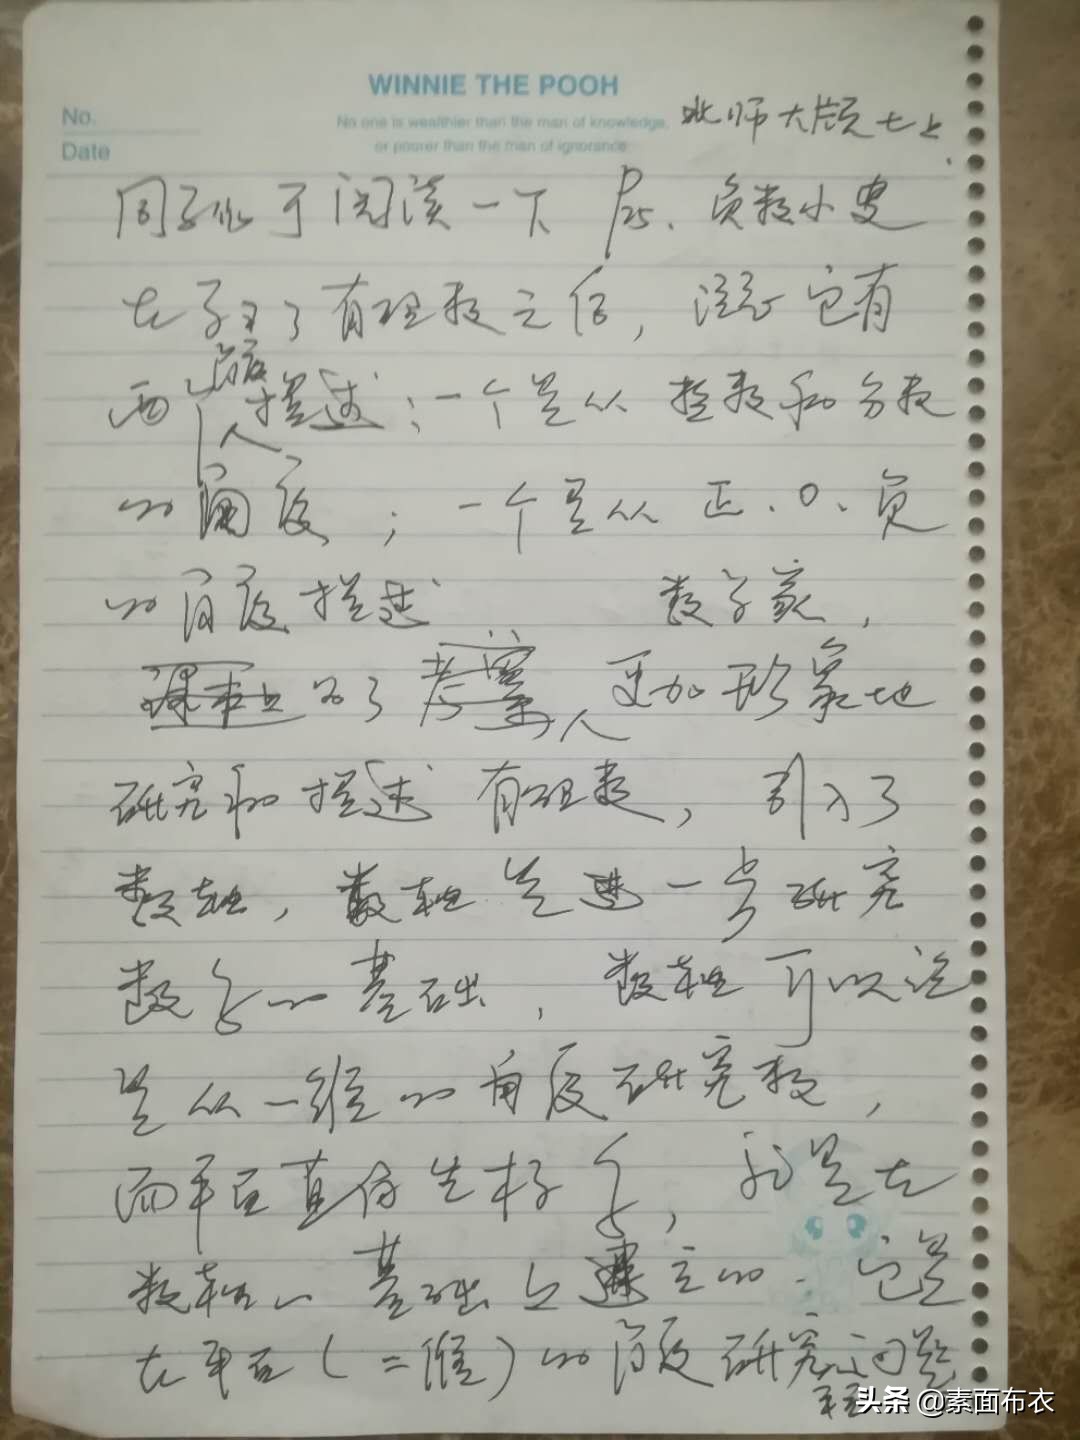 WINNIE THE POOH
No.
No one is wealthier than the man of knowledge,
北师大版七上
Date
or poorer than the man of ignorance
同学们可阅读一下 P25. 负数小史
在学习了有理数之后, 注意它有
两个角度描述; 一个是从整数和分数
的角度; 一个是从正、0、负
的角度描述 数学家,
课本上为了考察 更加形象地
研究和描述有理数, 引入了
数轴, 数轴是进一步研究
数学的基础, 数轴可以说
是从一维的角度研究数,
而平面直角坐标系, 就是在
数轴的基础上建立的. 它是
在平面(二维)的角度研究问题
头条 @素面布衣